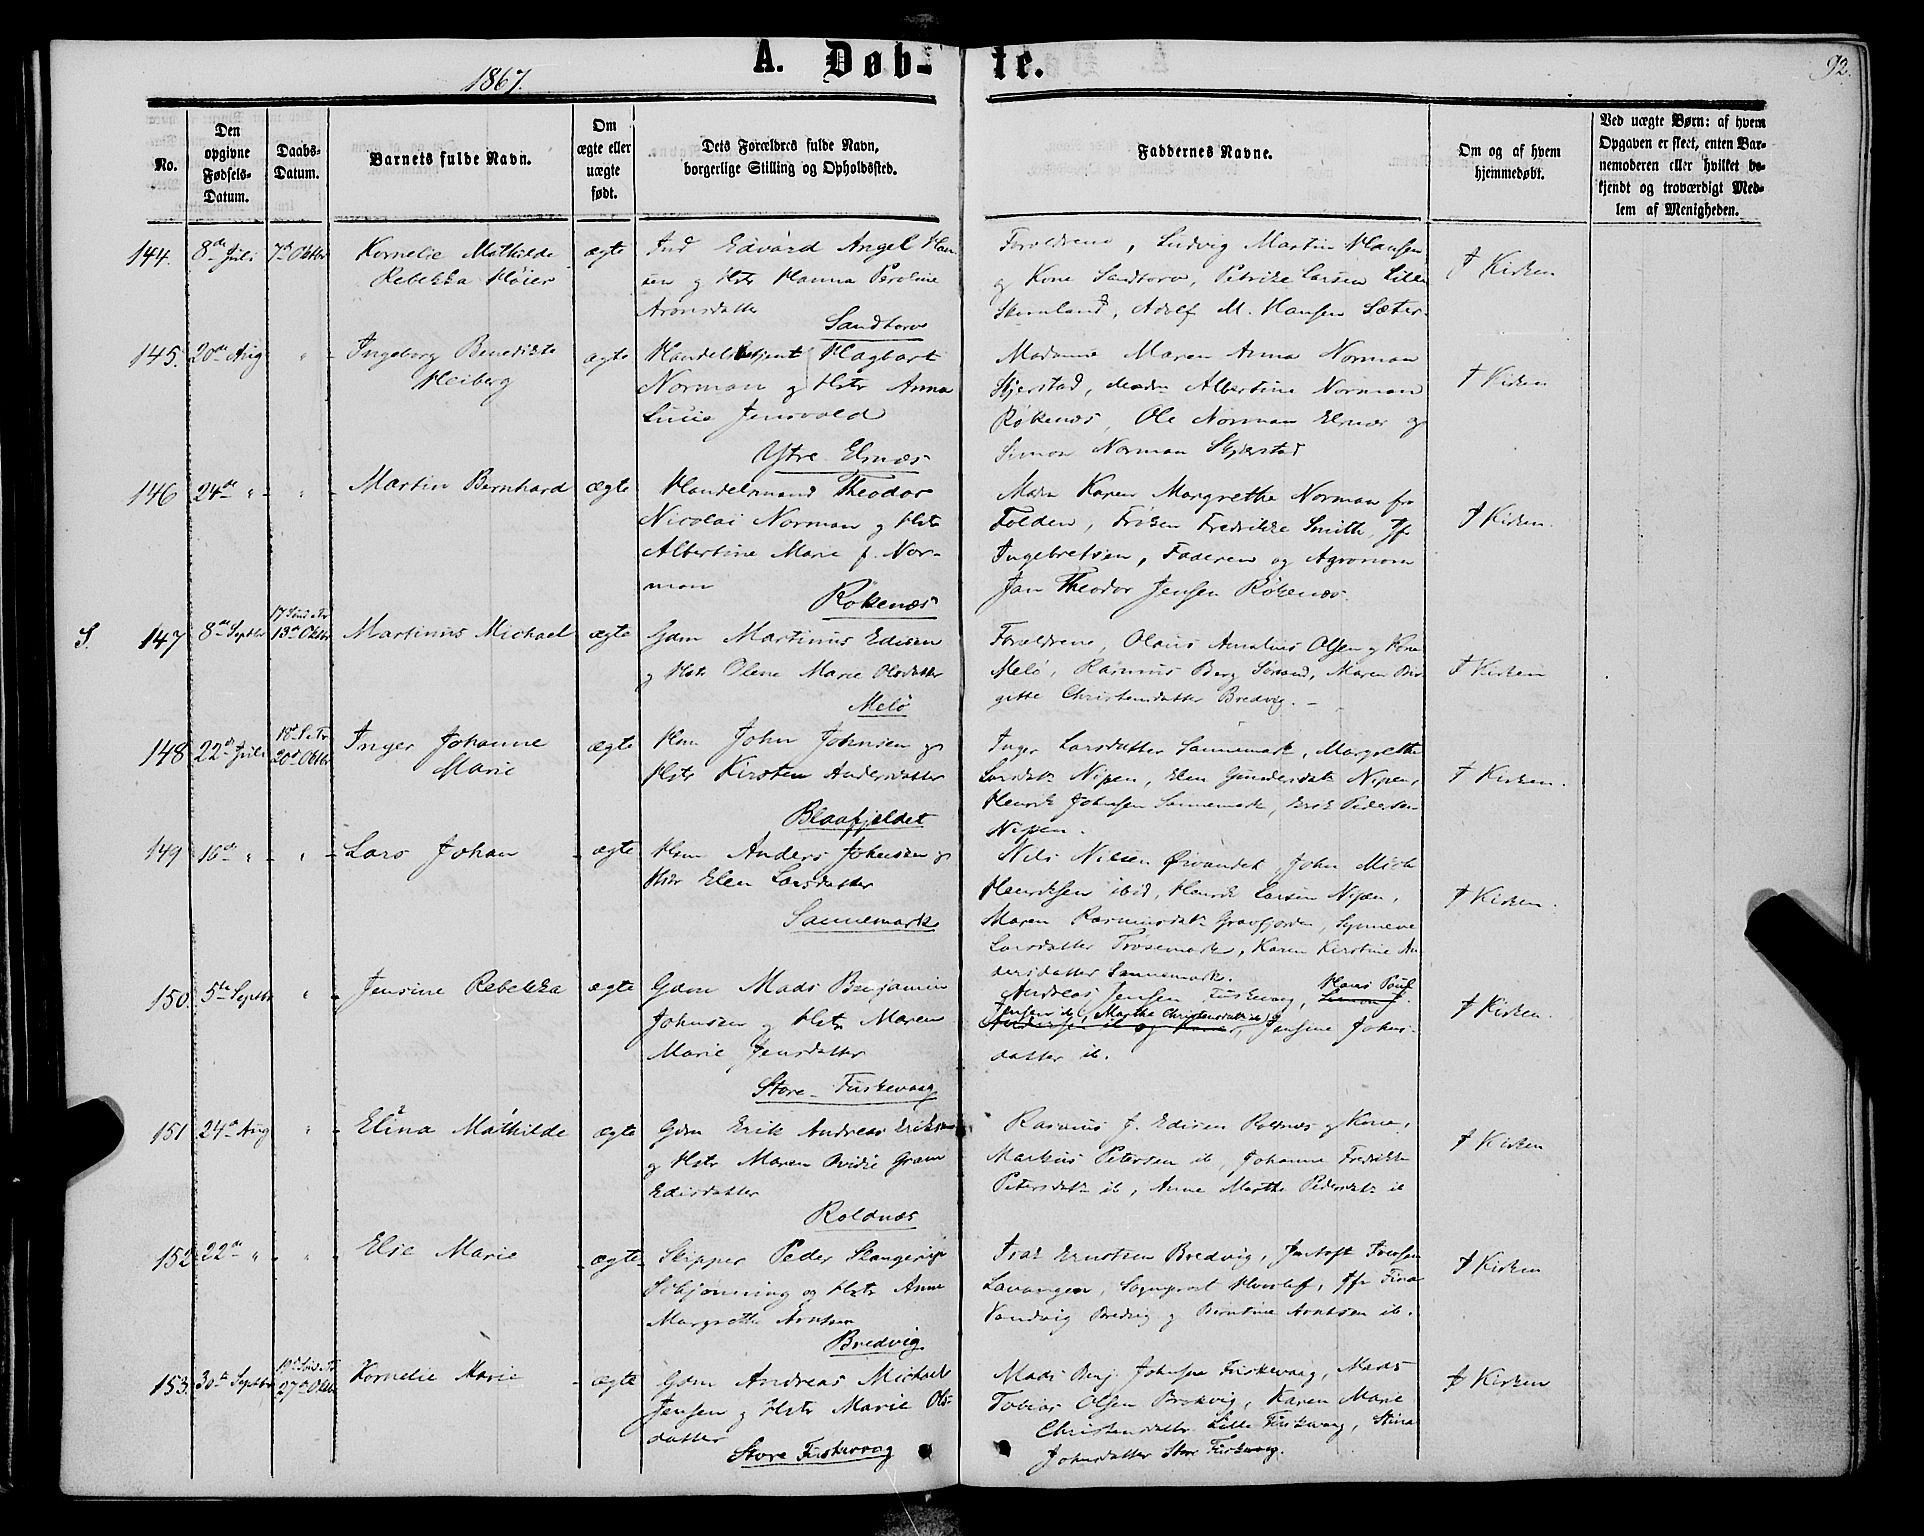 A. Døb-te.
1867.
92.
No.
Den opgivne Fødsels-Datum.
Daabs-Datum.
Barnets fulde Navn.
Om ægte eller uægte født.
Dets Forældres fulde Navn, borgerlige Stilling og Opholdssted.
Faddernes Navne.
Om og af hvem hjemmedøbt.
Ved uægte Børn: af hvem Opgaven er skeet, enten Barnemoderen eller hvilket bekjendt og troværdigt Medlem af Menigheden.
144. 8de Juli 7de Oktbr
Kornelie Mathilde
Rebekka Høier
ægte
Ind Edvard Angel Han-
sen og Hstr Hanna Peroline
Aronsdatter
Sandtorv
Forældrene, Ludvig Martin Hansen
og Kone Sandtorv, Petrikke Larsen Lille
Adolf M. Hansen Sæter.
I Kirken
145. 20de Aug " -
Ingeborg Benedikte
Heiberg
ægte
Handelsbetjent Hagbart
Norman og Hstr Anna
Lucie Jensvold
Ytre Elnæs
Madame Maren Anna Norman
Skjerstad, Madm Albertine Norman
Røkenæs, Ole Norman Elnæs og
Simon Norman Skjerstad
I Kirken
146 24de " - " -
Martin Bernhard
ægte
Handelsmand Theodor
Nicolai Norman og Hstr
Albertine Marie f. Nor-
man
Røkenæs
Madm Karen Margrethe Norman fra
Folden, Frøken Fredrikke Smith, Jfr
Ingebretsen, Faderen og Agronom
Jan Theodor Jensen Røkenæs.
I Kirken.
S. 147 8de Septbr 17 Sønd e Tr
13de Oktbr
Martinus Michael
ægte
Gdm Martinus Edisen
og Hstr Olene Marie Olsdatter
Melø
Forældrene, Olaus Amalius Olsen og Kone
Melø, Rasmus Berg Sørand, Maren Bir-
gitte Christensdatter Bredvig. -
I Kirken
148 22de Juli 18de S. e Tr
20de Oktbr
Inger Johanne
Marie
ægte
Hsm John Johnsen og
Hstr Kirsten Andersdatter
Blaafjeldet
Inger Larsdatter Sannemark, Margrethe
Larsdatr Nipen, Elen Gundersdatr Nipen,
Henrik Johnsen Sannemark, Erik Pedersen
Nipen.
I Kirken.
149 16de " - " -
Lars Johan
ægte
Hsm Anders Johnsen og
Hstr Elen Larsdatter
Sannemark
Nils Nilsen Øvandet, John Mich
Henriksen ibid, Henrik Larsen Nipen,
Maren Rasmusdatr Gravfjorden, Synneve
Larsdatter Trøsemark, Karen Kirstine An-
dersdatter Sannemark.
I Kirken.
150. 5te Septbr " -
Jensine Rebekka
ægte
Gdm Mads Benjamin
Johnsen og Hstr Maren
Marie Jensdatter
Store-Fuskevaag
Andreas Jensen Fuskevaag, Hans Poul
Jensen ib, Marthe Christensdatr ib, og
Jensine Johns-
datter ib.
I Kirken.
151 24de Aug "
Elina Mathilde
ægte
Gdm Erik Andreas Eriksen
og Hstr Maren Ovidie Gram
Edisdatter
Roldnæs
Rasmus J. Edisen Roldnæs og Kone,
Markus Petersen ib, Johanne Fredrikke
Petersdatr ib, Anne Marthe Pedersdatr ib
I Kirken
152 22de " - " -
Else Marie
ægte
Skipper Peder
Schjønning og Hstr Anne
Margrethe Arntsen
Bredvig
Isak Erntsen Bredvig, Iversen
Lavangen, Sogneprest Hvoslef, Jfr Fina
Vendvig Bredvig og Berntine Arntsen ib.
I Kirken
153. 30de Septbr 19de Sønd e Tr
27de Oktbr
Kornelie Marie
ægte
Gdm Andreas Michael
Jensen og Hstr Marie Ols-
datter
Store Fuskevaag
Mads Benj. Johnsen Fuskevaag, Mads
Tobias Olsen Brokvig, Karen Marie
Christensdatter Lille Fuskevaag, Stina
Johnsdatter Store Fuskevaag.
I Kirken